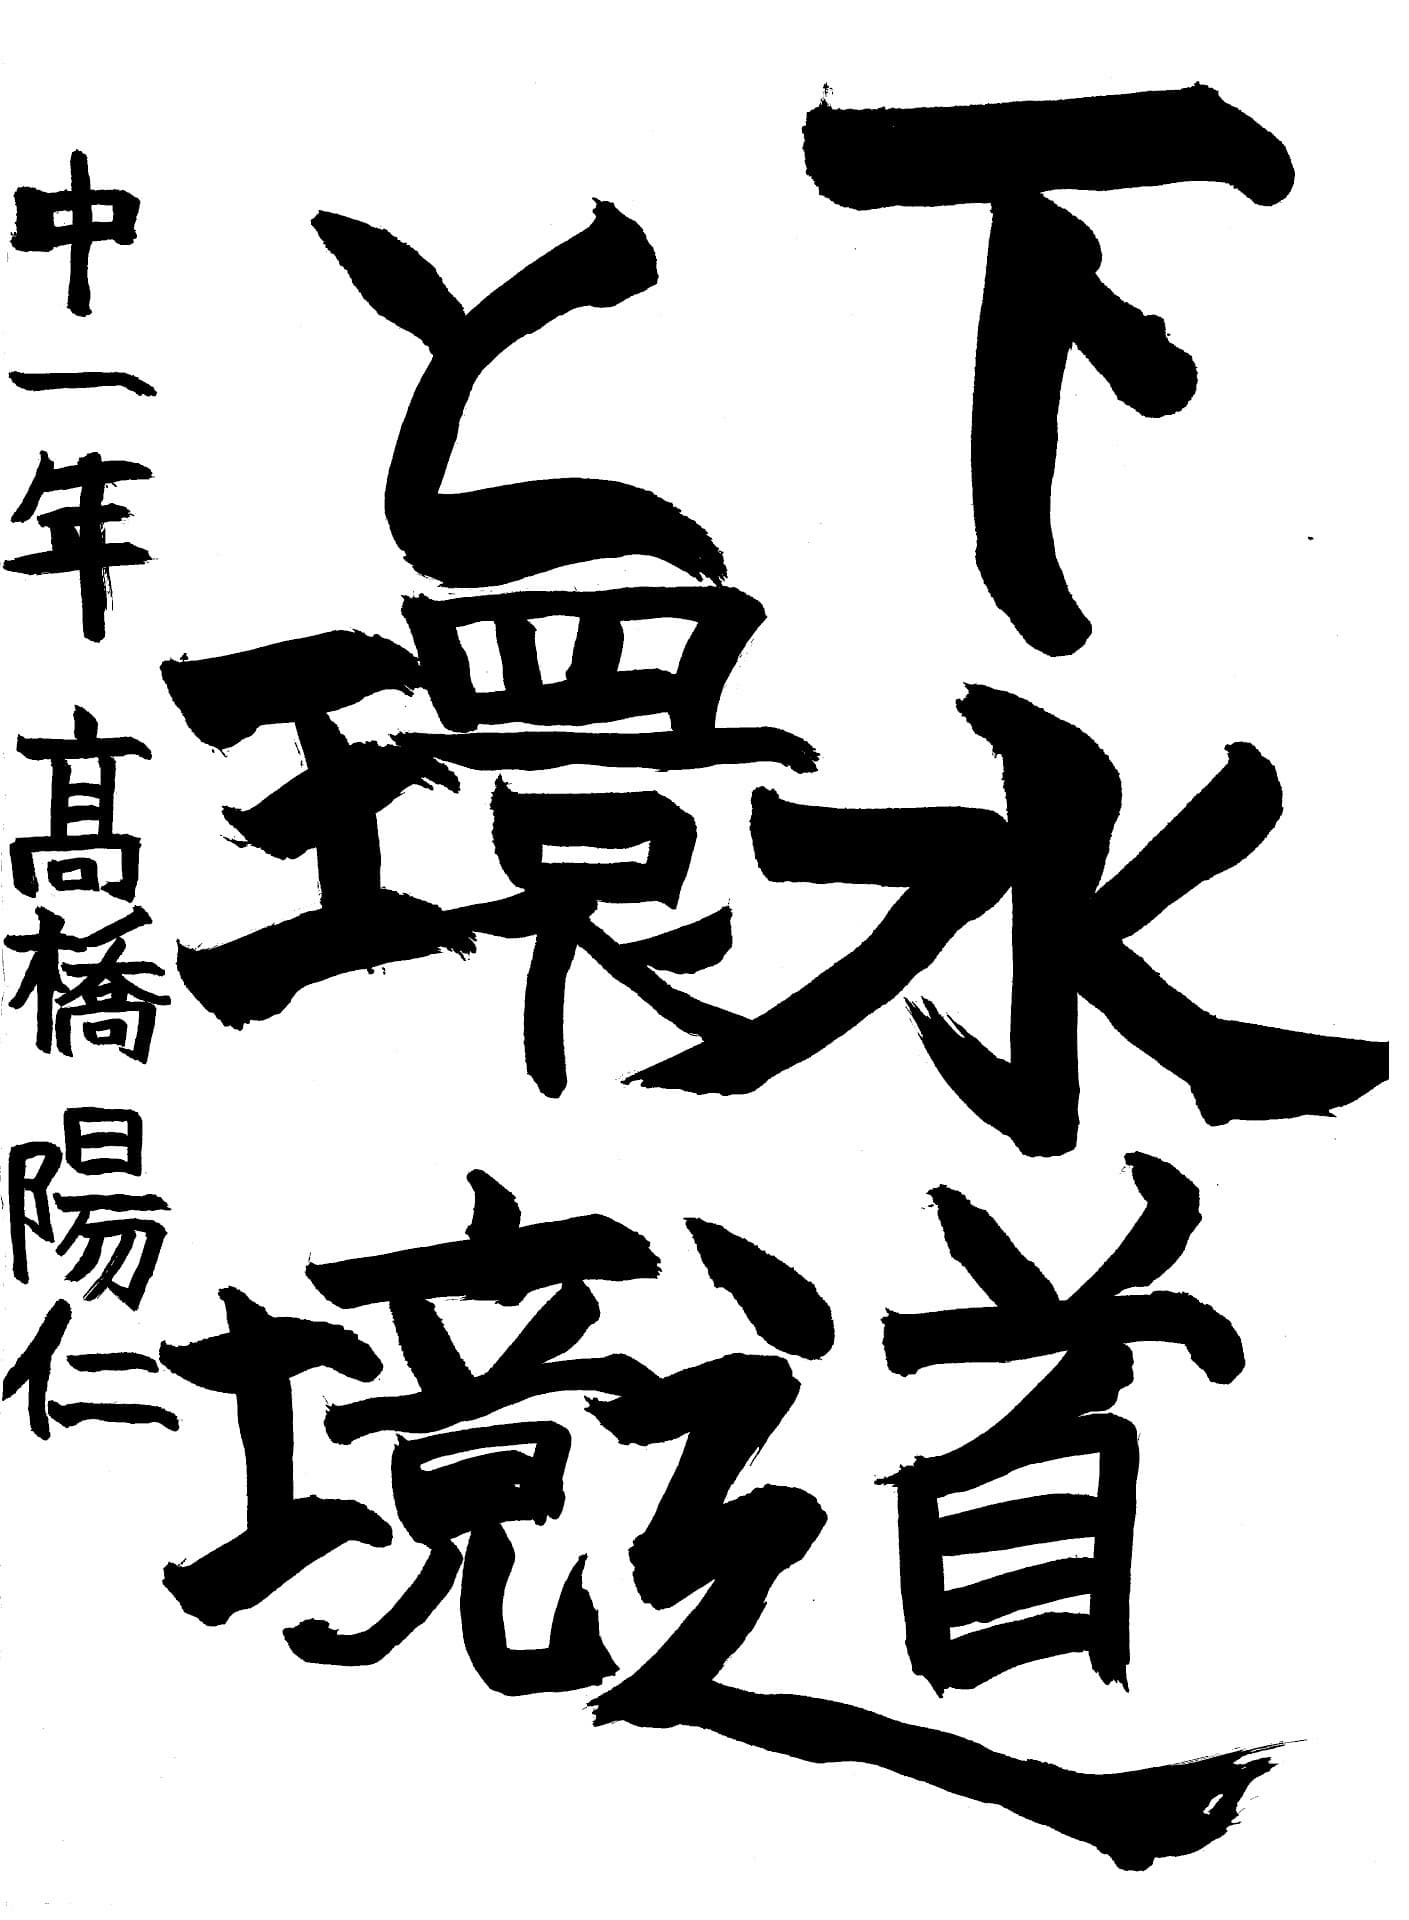 下水道
と環境
中一年 髙橋陽仁